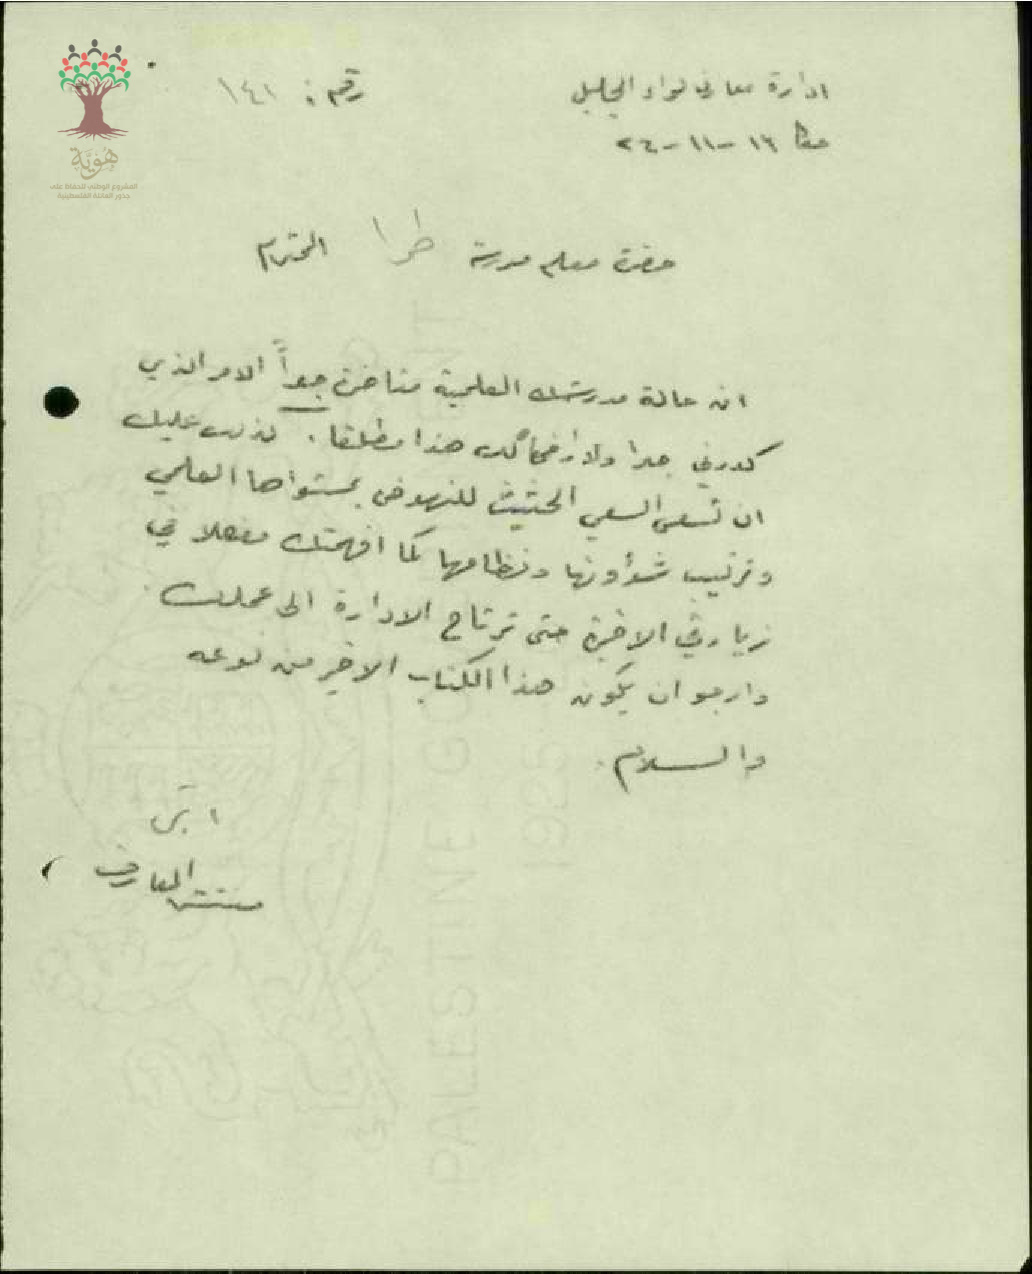 هوية
المشروع الوطني للحفاظ على
جذور العائلة الفلسطينية
ادارة معارف لواء الجليل رقم: ١٤١
عكا ١٦-١١-٢٤
حضرة معلم مدرسة طمرا المحترم
ان حالة مدرستك العلمية متأخرة جداً الامر الذي
كدرني جدا ولا هذا مطلقا. لذلك عليك
ان تسعى السعي الحثيث للنهوض بمستواها العلمي
وترتيب شؤونها ونظامها كما افهمتك مفصلا في
زيارتي الاخيرة حتى ترتاح الادارة الى عملك
وارجو ان يكون هذا الكتاب الاخير من نوعه
والسلام.
مفتش المعارف
PALESTINE GOVERNMENT